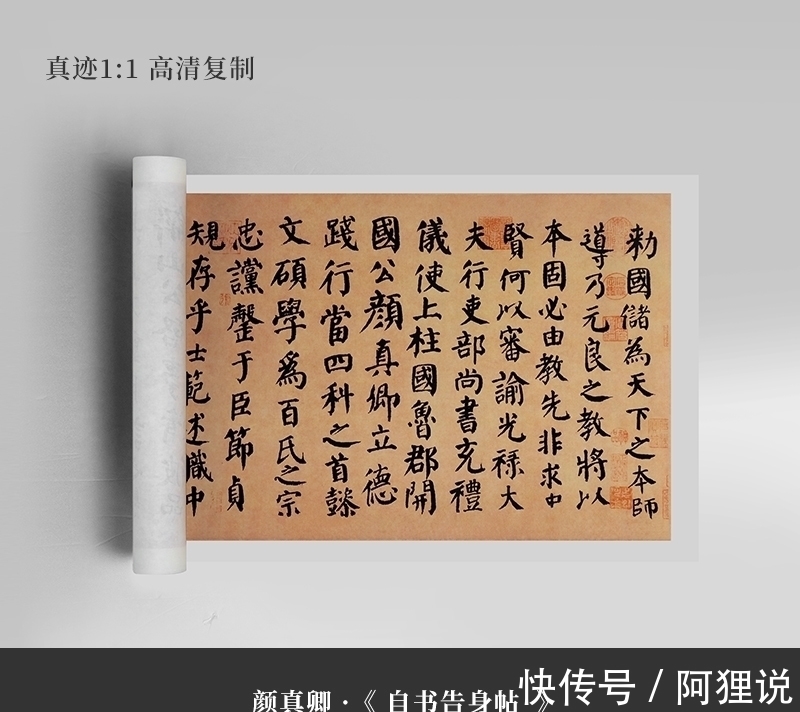 真迹1:1 高清复制
勑國儲為天下之本師
導乃元良之教將以
本固必由教先非求中
賢何以審諭光祿大
夫行吏部尚書充禮
儀使上柱國魯郡開
國公顏真卿立德
踐行當四科之首懿
文碩學爲百氏之宗
忠讜罄于臣節貞
規存乎士範述職中
颜真卿·《 自书告身帖 》
快传号 / 阿狸说